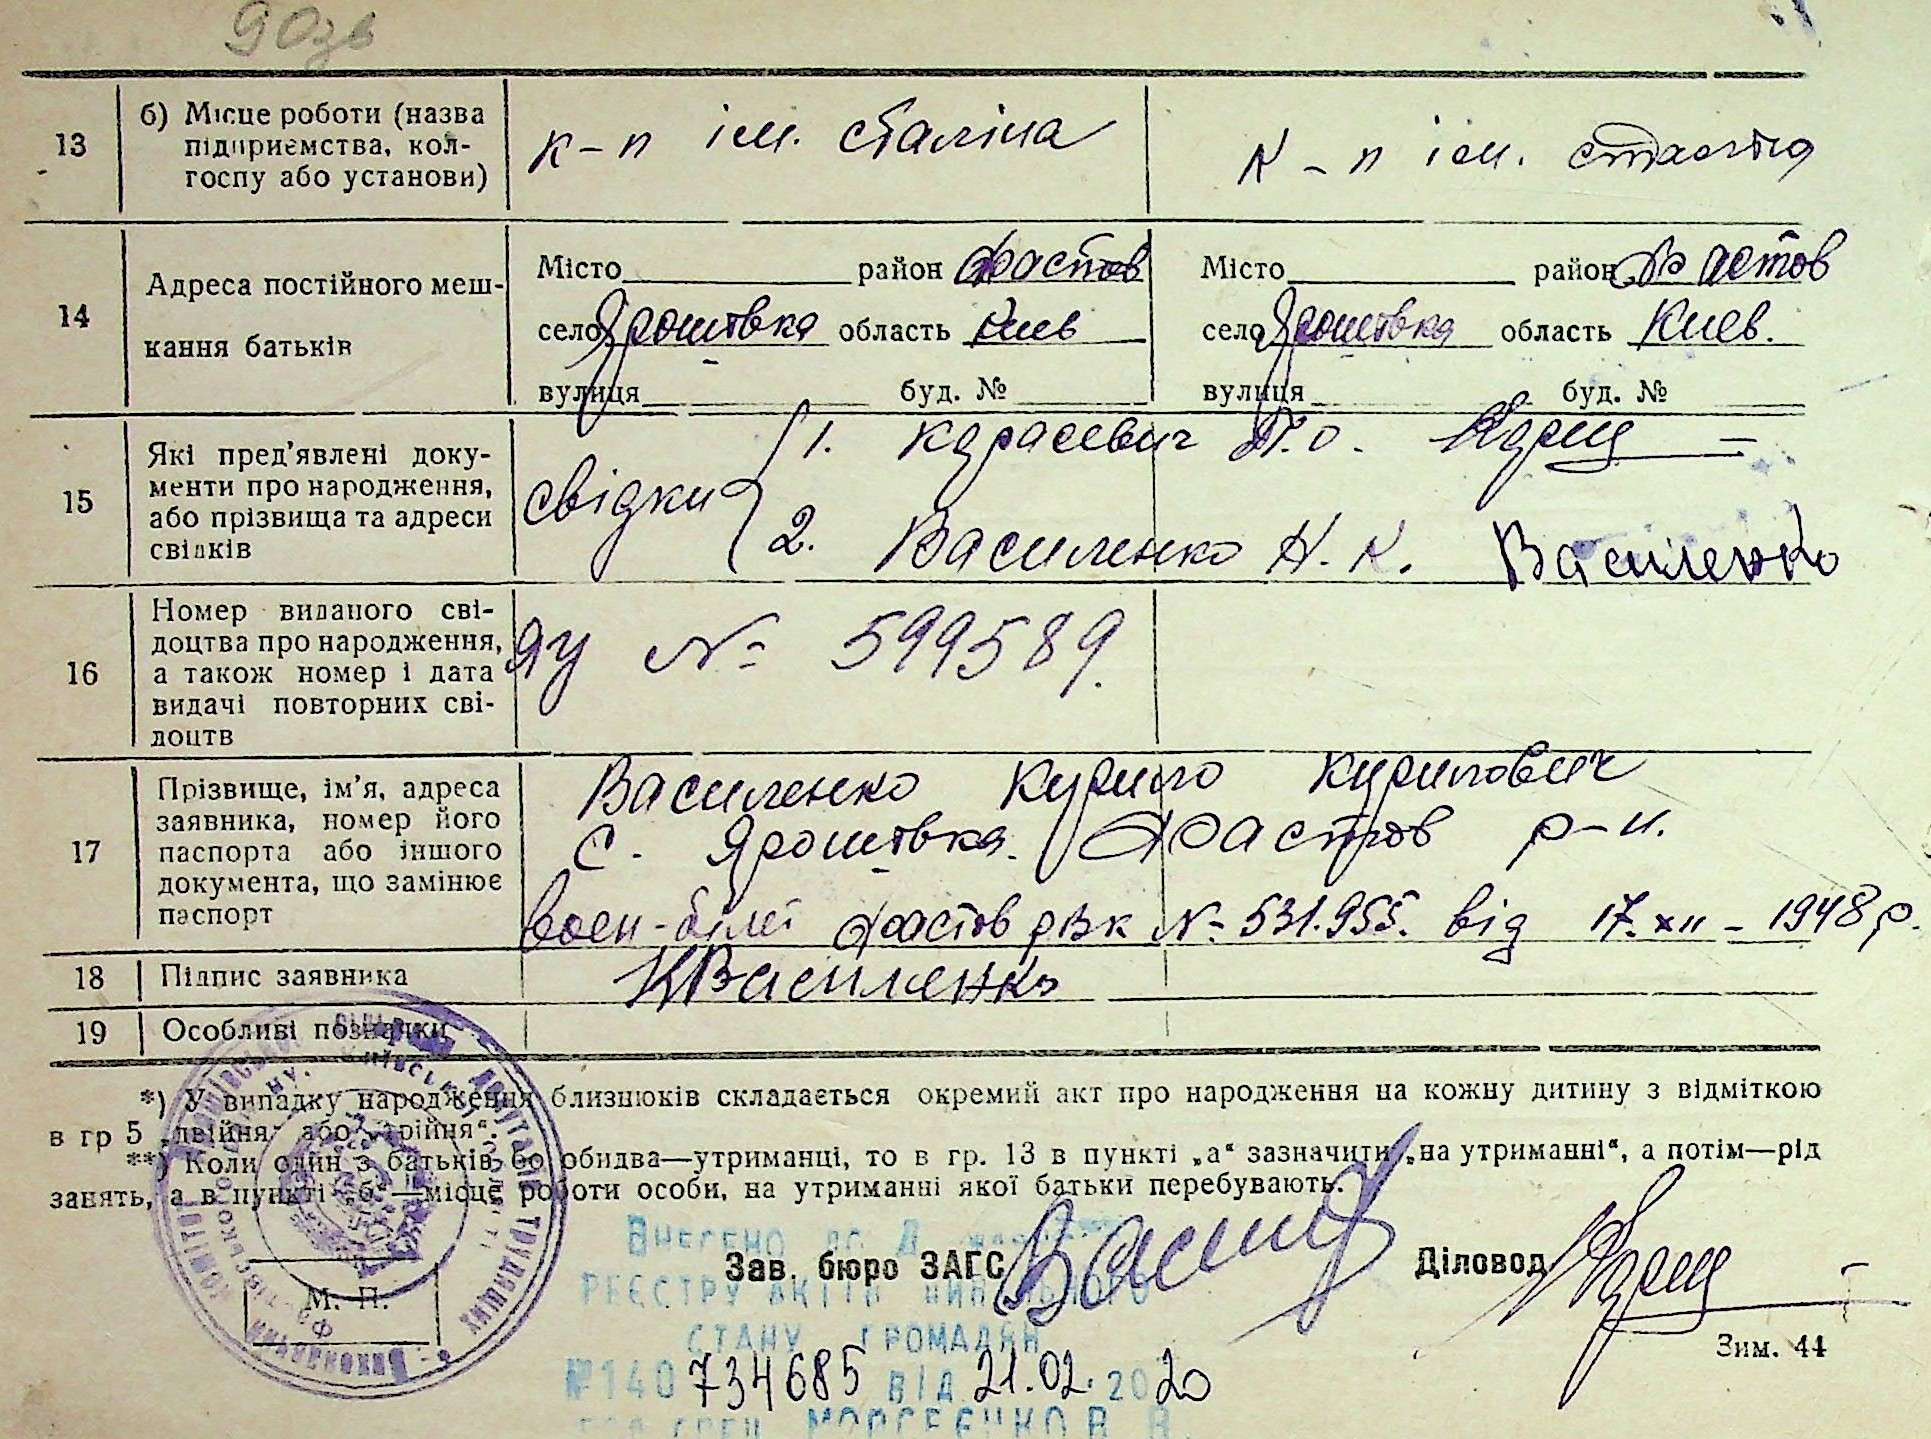 13
б) Місце роботи (назва
підприємства, кол-
госпу або установи)
к-п ім. Сталіна
к-п ім. Сталіна
14
Адреса постійного меш-
кання батьків
Місто район Фастов
село Ярошівка область Киев
вулиця буд. №
Місто район Фастов
село Ярошівка область Киев.
вулиця буд. №
15
Які пред'явлені доку-
менти про народження,
або прізвища та адреси
свідків
свідки
1. Карасевич
2. Василенко Н. К. Василенко
16
Номер виданого сві-
доцтва про народження,
а також номер і дата
видачі повторних сві-
доцтв
ЯУ № 599589.
17
Прізвище, ім'я, адреса
заявника, номер його
паспорта або іншого
документа, що замінює
паспорт
Василенко Курило Курилович
с. Ярошівка. Фастов р-н.
воен-білет Фастов рвк № 531.955. від 17.XII-1948 р.
18
Підпис заявника
КВасиленко
19
Особливі позначки
*) У випадку народження близнюків складається окремий акт про народження на кожну дитину з відміткою
в гр 5 „двійня“ або „трійня“.
**) Коли один з батьків бо обидва—утриманці, то в гр. 13 в пункті „а“ зазначити „на утриманні“, а потім—рід
занять, а в пункті „б“—місце роботи особи, на утриманні якої батьки перебувають.
Зав. бюро ЗАГС
Діловод
М. П.
Зим. 44
Внесено до
Реєстру актів цивільного
стану громадян
№140 734685 від 21.02.2020